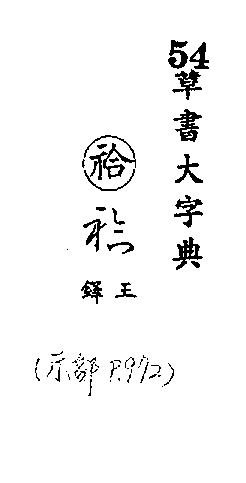 54
草書大字典
祫
祫
王鐸
(示部 P.972)